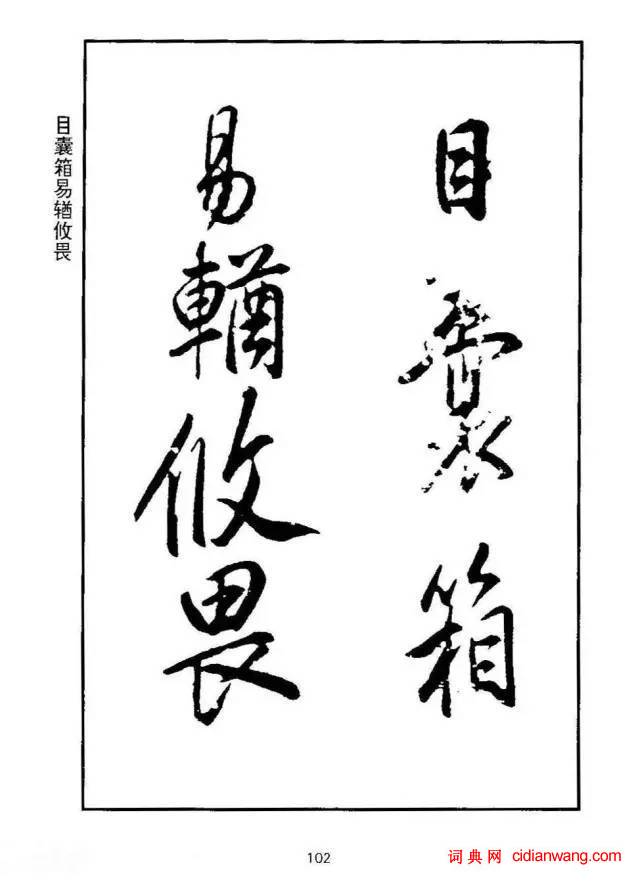 目囊箱
易輶攸畏
目囊箱易𬨎攸畏
102
词典网 cidianwang.com